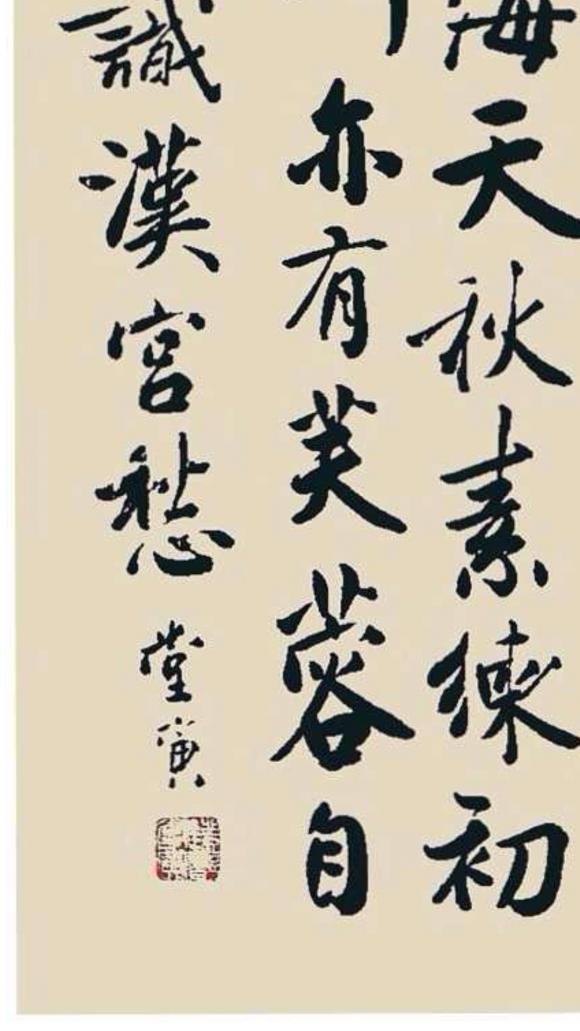 海天秋素練初
亦有芙蓉自
識漢宮愁
堂寅